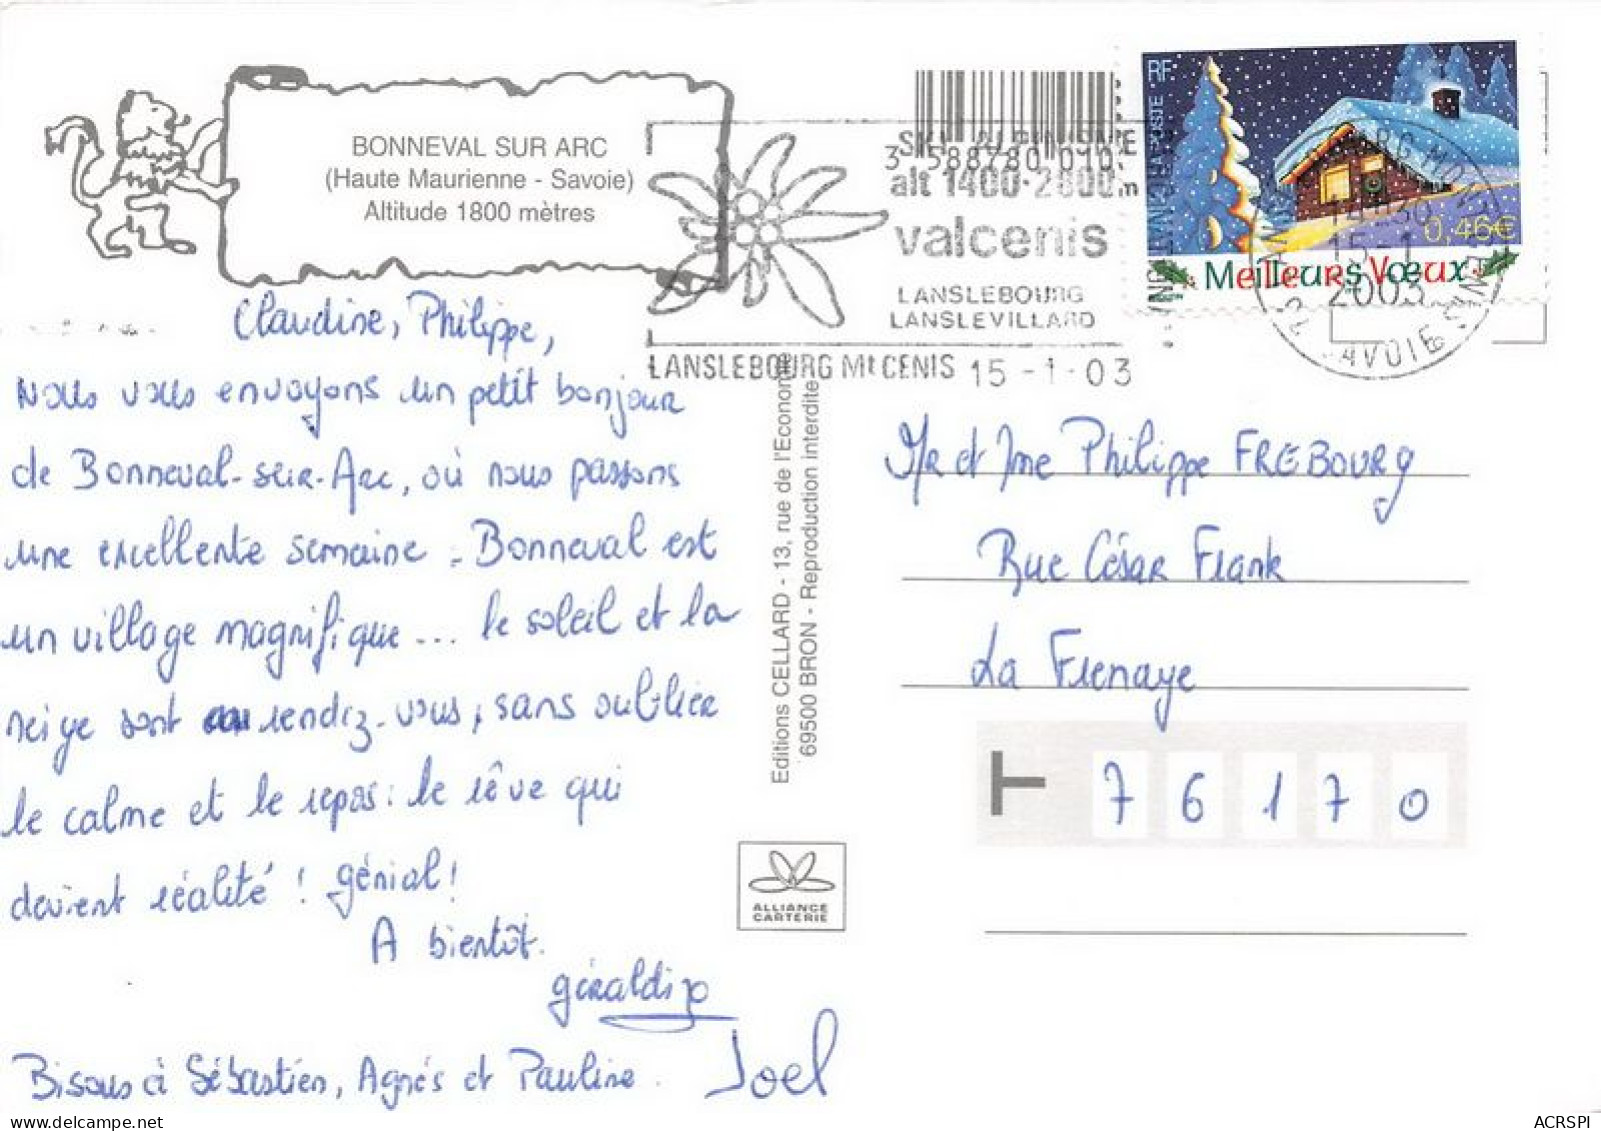 BONNEVAL SUR ARC
(Haute Maurienne - Savoie)
Altitude 1800 mètres
3 588780 010
alt 1400-2800m
valcenis
LANSLEBOURG
LANSLEVILLARD
LANSLEBOURG Mt CENIS 15 -1-03
RF
LA POSTE
0,46€
Meilleurs Vœux
14H30
15-1
2003
SAVOIE
Claudine, Philippe,
Nous vous envoyons un petit bonjour
de Bonneval-sur-Arc, où nous passons
une excellente semaine. Bonneval est
un village magnifique... le soleil et la
neige sont au rendez-vous, sans oublier
le calme et le repos : le rêve qui
devient réalité ! génial !
A bientôt.
Géraldine
Joel
Bisous à Sébastien, Agnès et Pauline.
Editions CELLARD - 13, rue de l'Economie
69500 BRON - Reproduction interdite
ALLIANCE
CARTERIE
Mr et Mme Philippe FREBOURG
Rue César Frank
La Frenaye
76170
ACRSPI